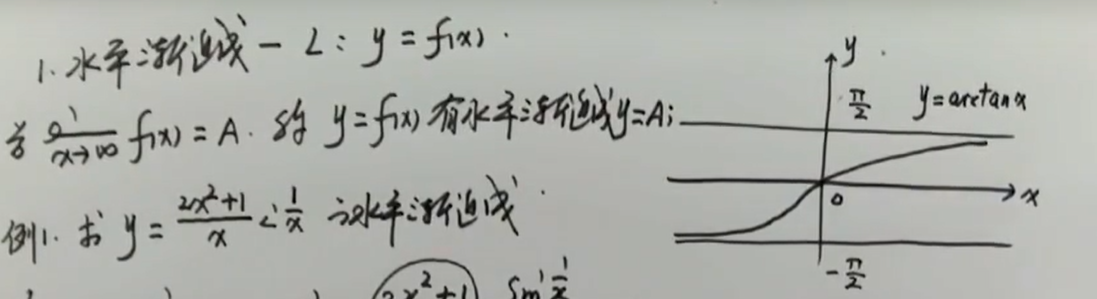 1. 水平渐近线 — L: y = f(x).
若 lim x→∞ f(x) = A. 称 y = f(x) 有水平渐近线 y = A;
例1. 求 y = (2x²+1)/x sin 1/x 的水平渐近线.
2x²+1 sin 1/x
y
π/2 y = arctan x
0 x
-π/2